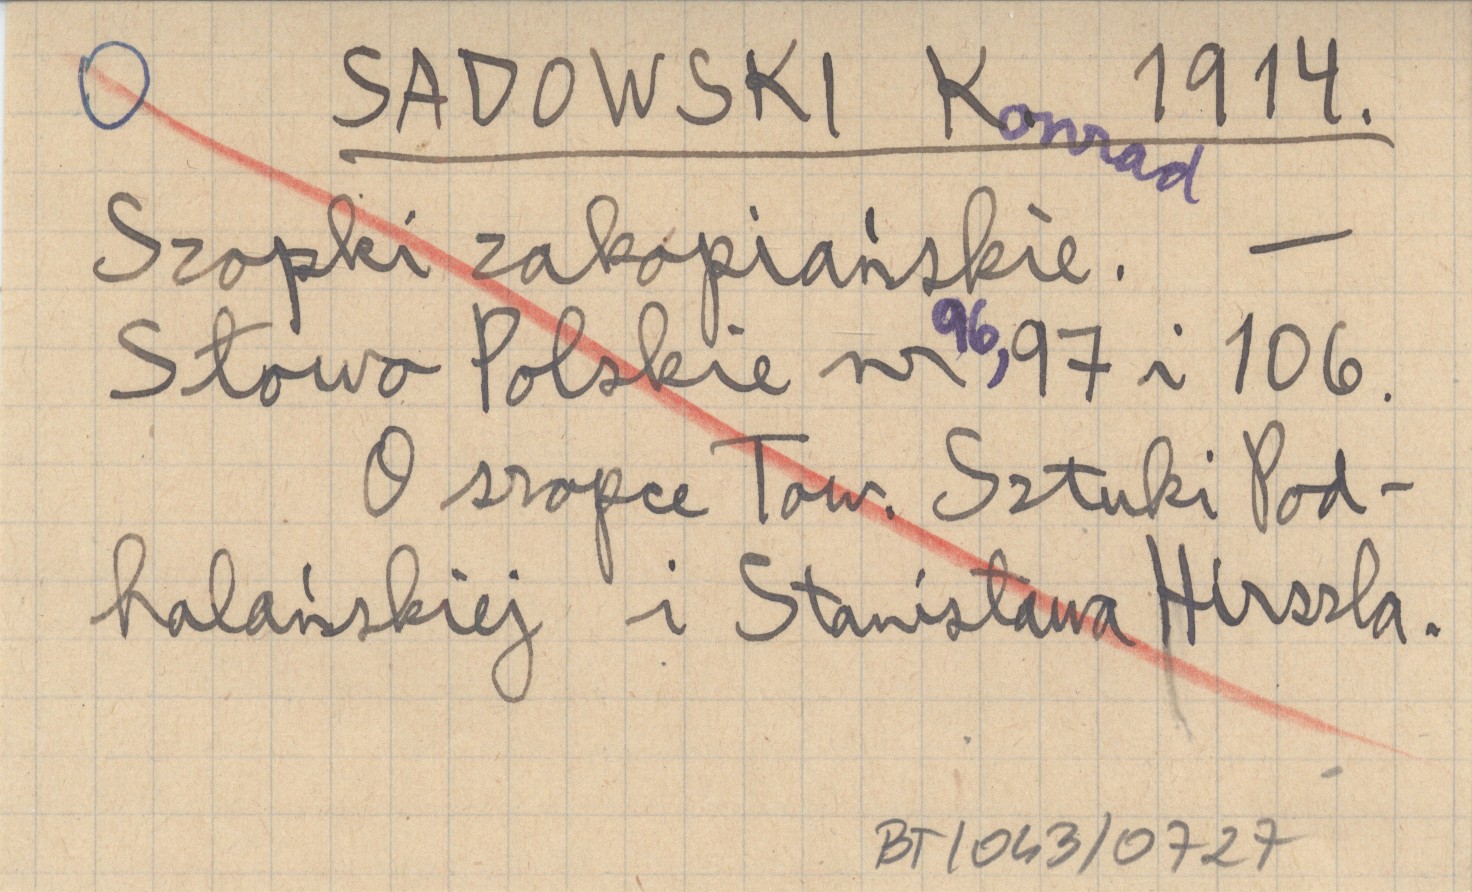 SADOWSKI Konrad 1914.
Szopki zakopiańskie. —
Słowo Polskie nr 96, 97 i 106.
O szopce Tow. Sztuki Pod-
halańskiej i Stanisława Hirszla.
BT/043/0727